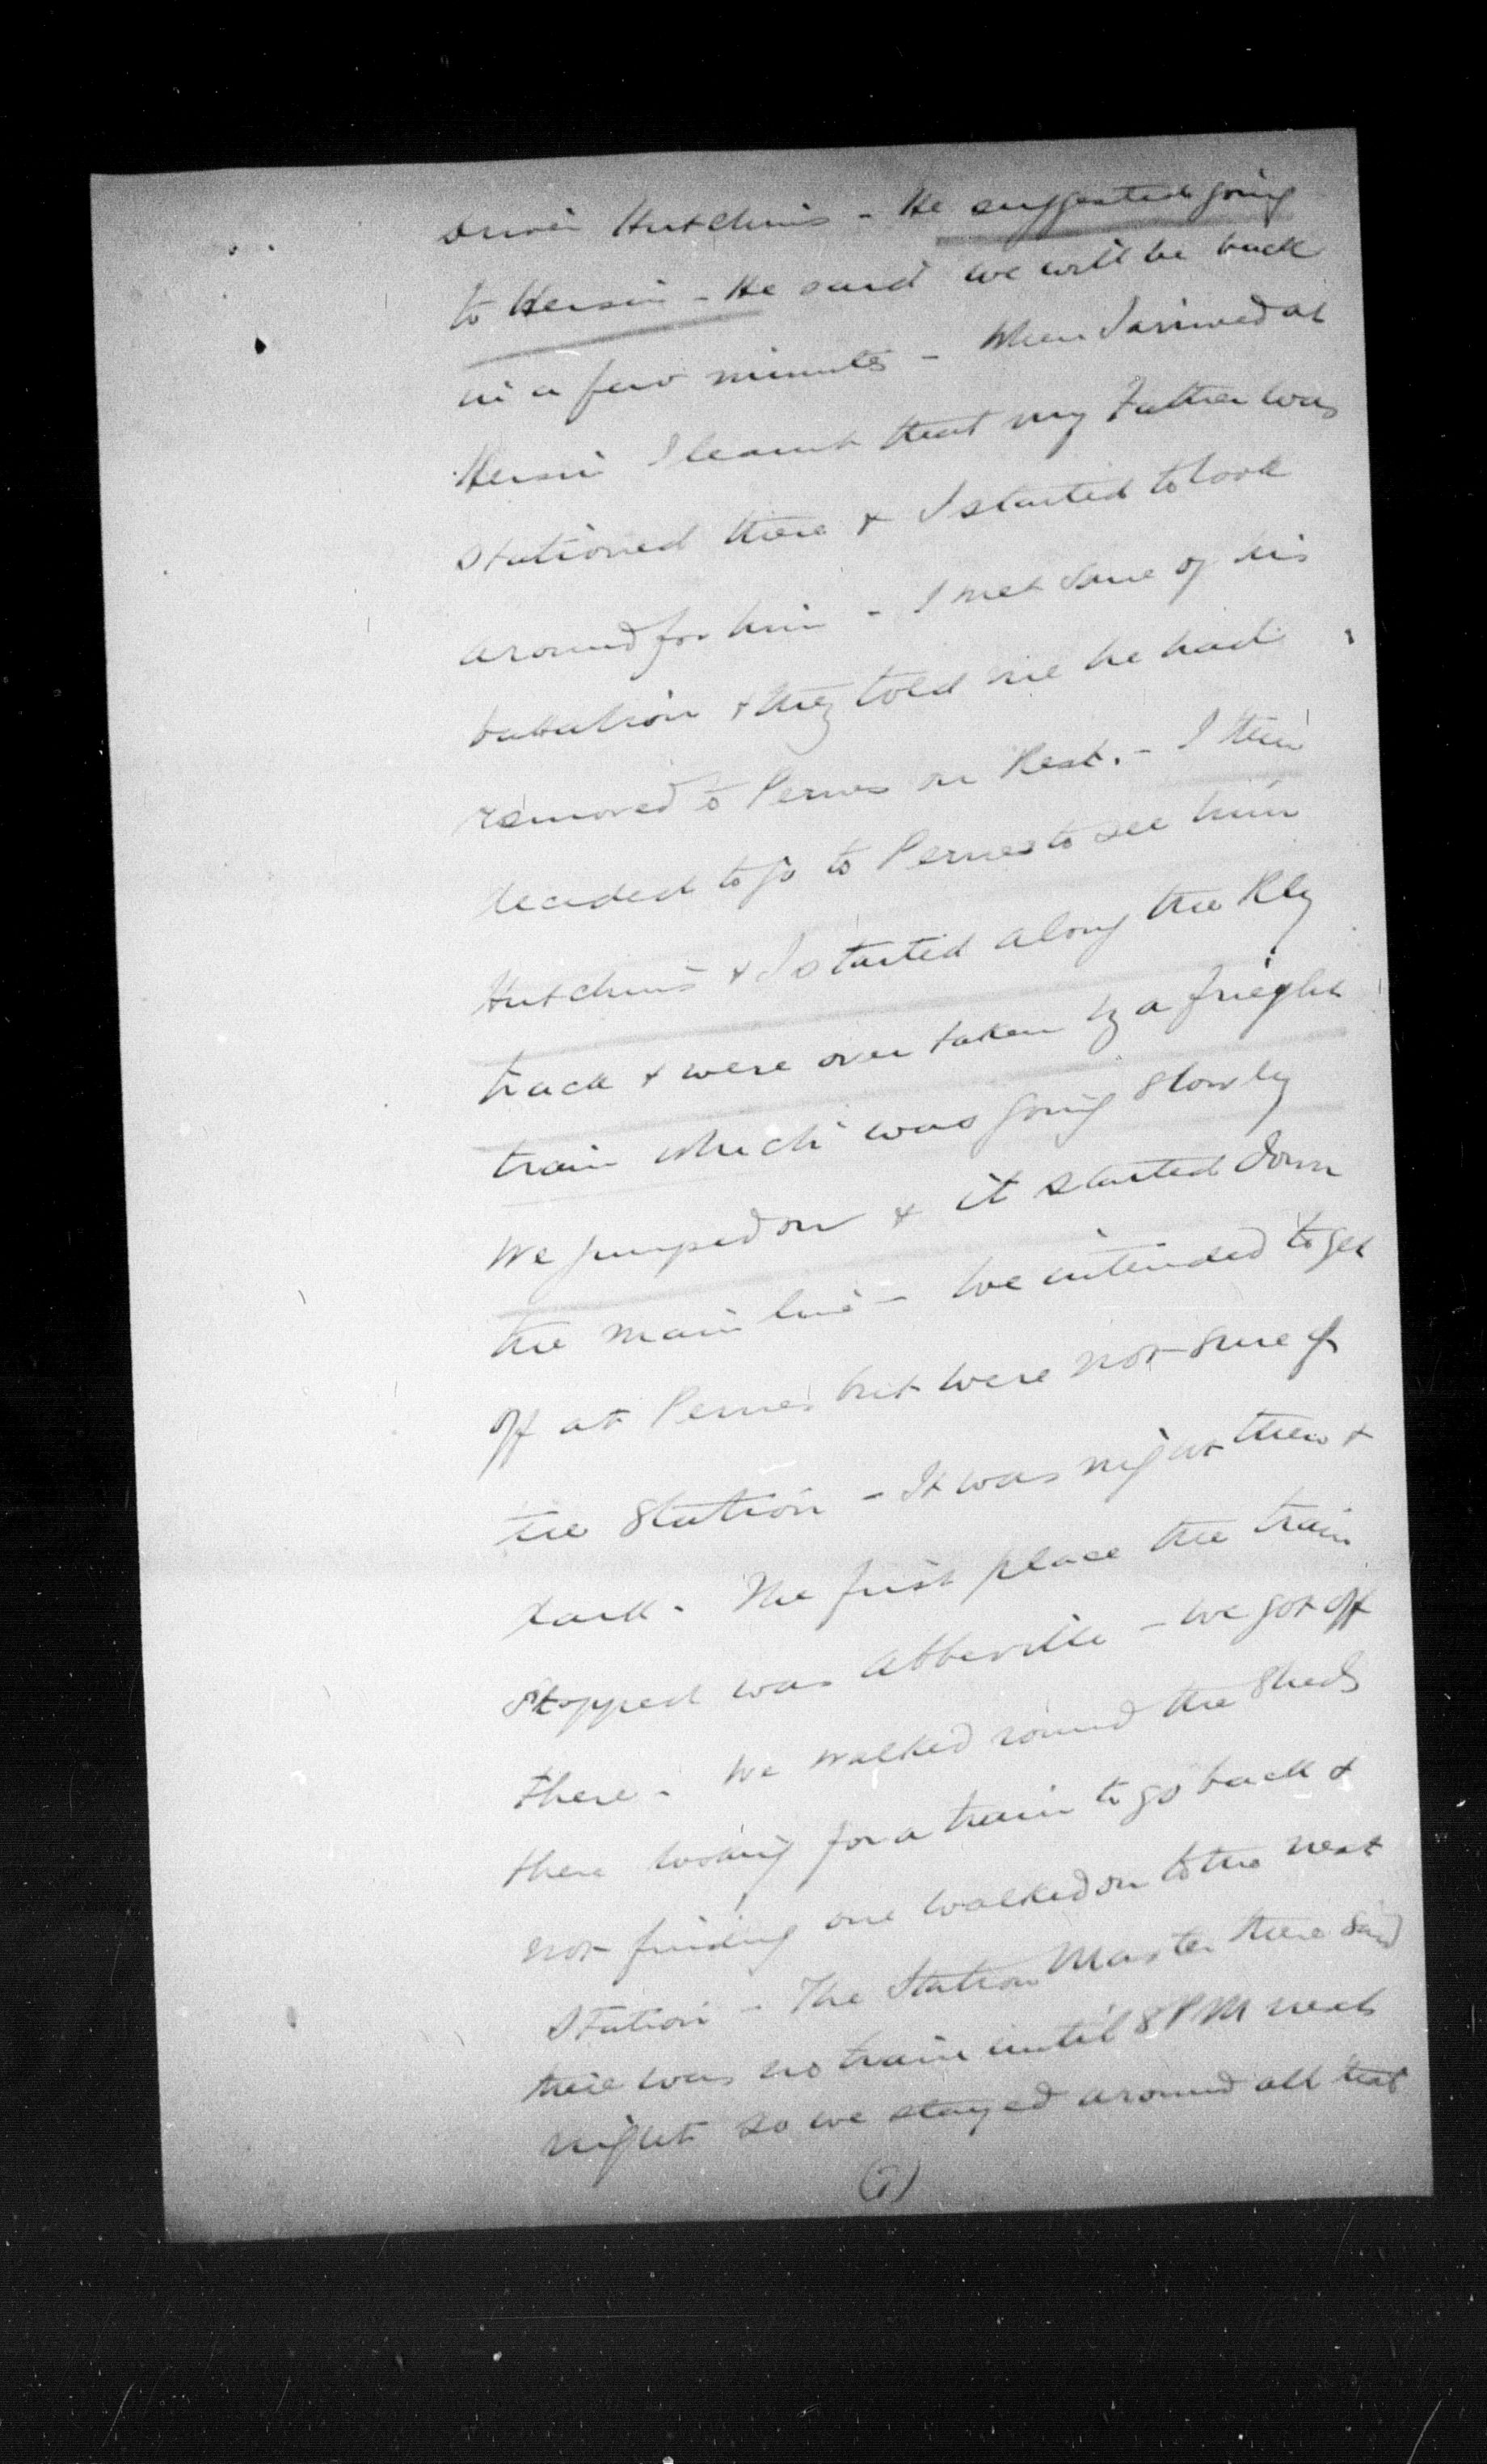 Driver Hutchins - He suggested going
to Hersin - He said we will be back
in a few minutes - When I arrived at
Hersin I learnt that my Father was
stationed there & I started to look
around for him - I met some of his
battalion & they told me he had
removed to Pernes on Rest. - I then
decided to go to Pernes to see him
Hutchins & I started along the Rly
track & were over taken by a frieght
train which was going slowly
We jumped on & it started down
the main line - We intended to get
off at Pernes but were not sure of
the Station - It was night then &
dark. The first place the train
stopped was Abbeville - We got off
there. We walked round the Sheds
there looking for a train to go back &
not finding one walked on to the next
Station - The Station Master there said
there was no train until 8 PM next
night so we stayed around all that
(7)